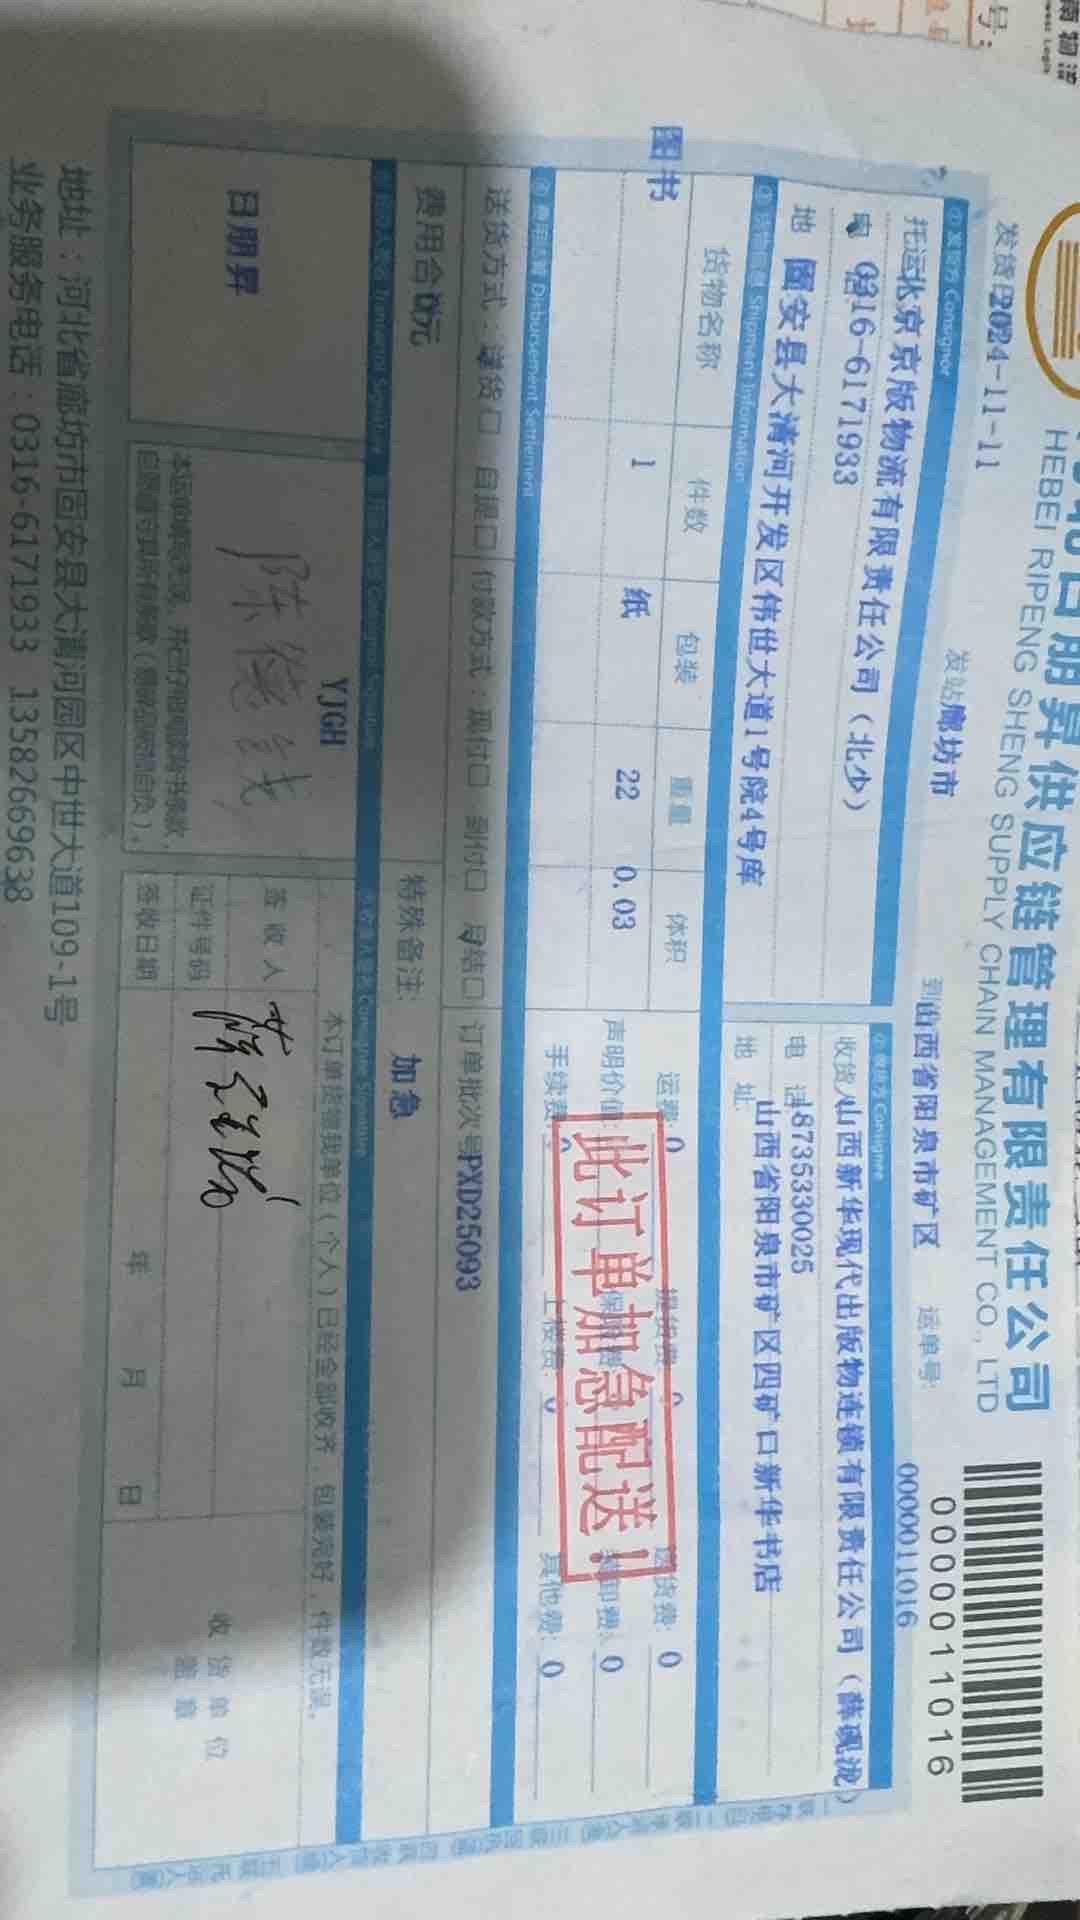 日朋昇供应链管理有限责任公司
HEBEI RIPENG SHENG SUPPLY CHAIN MANAGEMENT CO., LTD
000011016
发货日2024-11-11
发站廊坊市
到山西省阳泉市矿区
运单号:
000011016
① 发货方 Consignor
② 收货方 Consignee
托运北京京版物流有限责任公司（北少）
收货人山西新华现代出版物连锁有限责任公司（薛砚泷）
电话0316-6171933
电话18735330025
地 固安县大清河开发区伟世大道1号院4号库
地址 山西省阳泉市矿区四矿口新华书店
③ 货物信息 Shipment Information
货物名称 件数 包装 重量 体积
运费: 0 提货费: 0 送货费: 0
图书 1 纸 22 0.03
声明价值: 保险费: 装卸费: 0
手续费: 0 上楼费: 0 其他费: 0
此订单加急配送！
④ 费用结算 Disbursement Settlement
送货方式：送货口 自提口 付款方式：现付口 到付口 月结口 订单批次号PXD25093
费用合0元
特殊备注: 加急
Consignor Signature
Consignee Signature
日朋昇
YJGH
本订单货物我单位（个人）已经全部收齐，包装完好，件数无误。
签收人
证件号码
签收日期
年 月 日
收货单位
盖章
地址：河北省廊坊市固安县大清河园区中世大道109-1号
业务服务电话：0316-6171933 13582669638